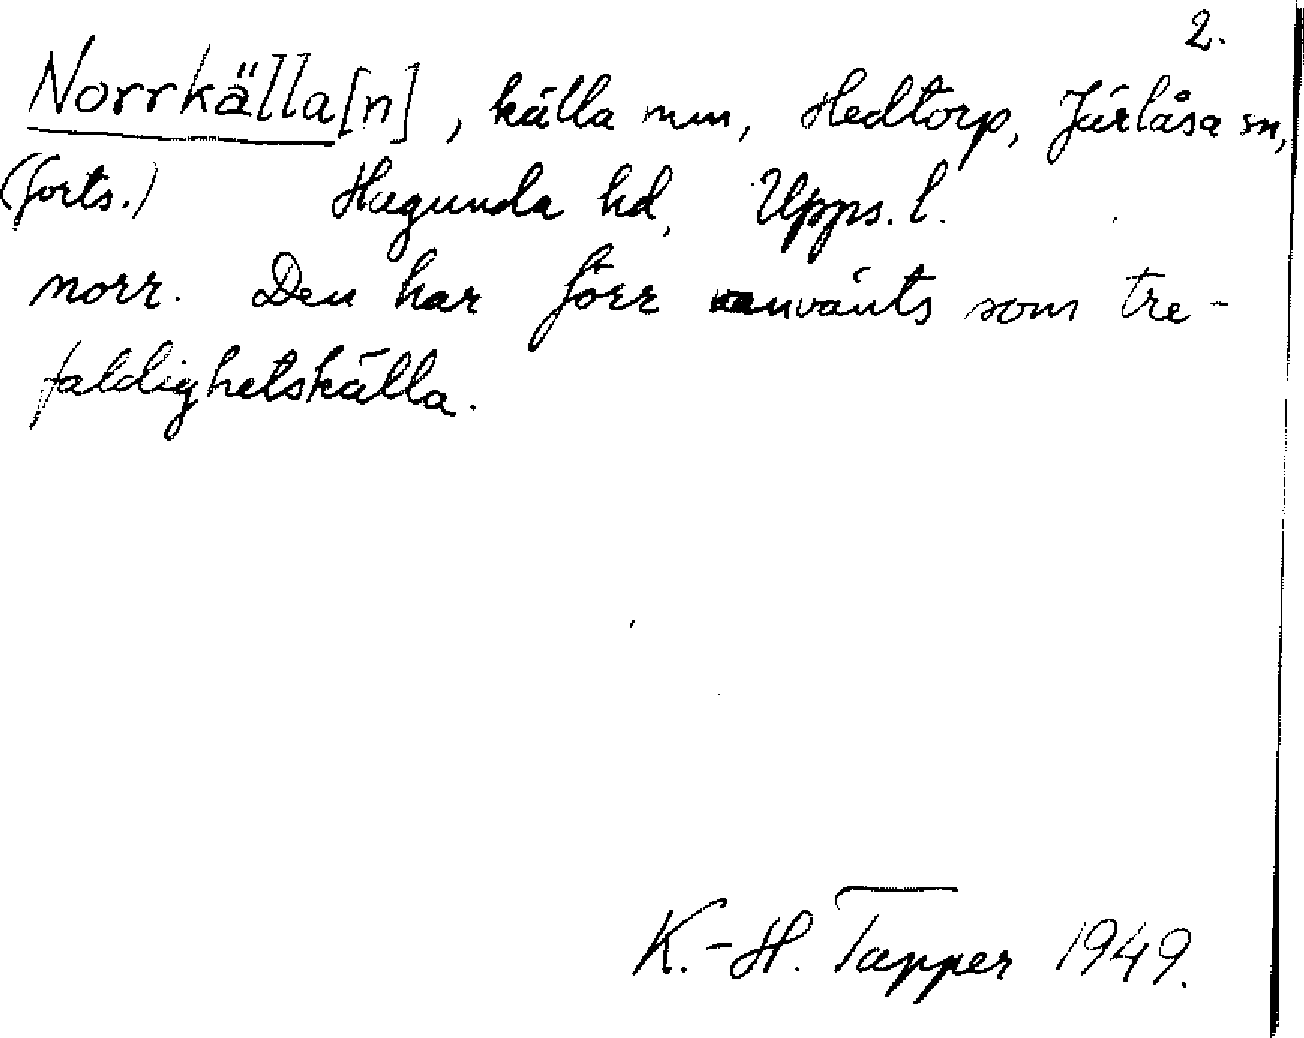 2.
Norrkälla[n], källa nm, Hedtorp, Järlåsa sn,
(forts.) Hagunda hd, Upps. l.
norr. Den har förr använts som tre-
faldighetskälla.
K.-H. Tapper 1949.